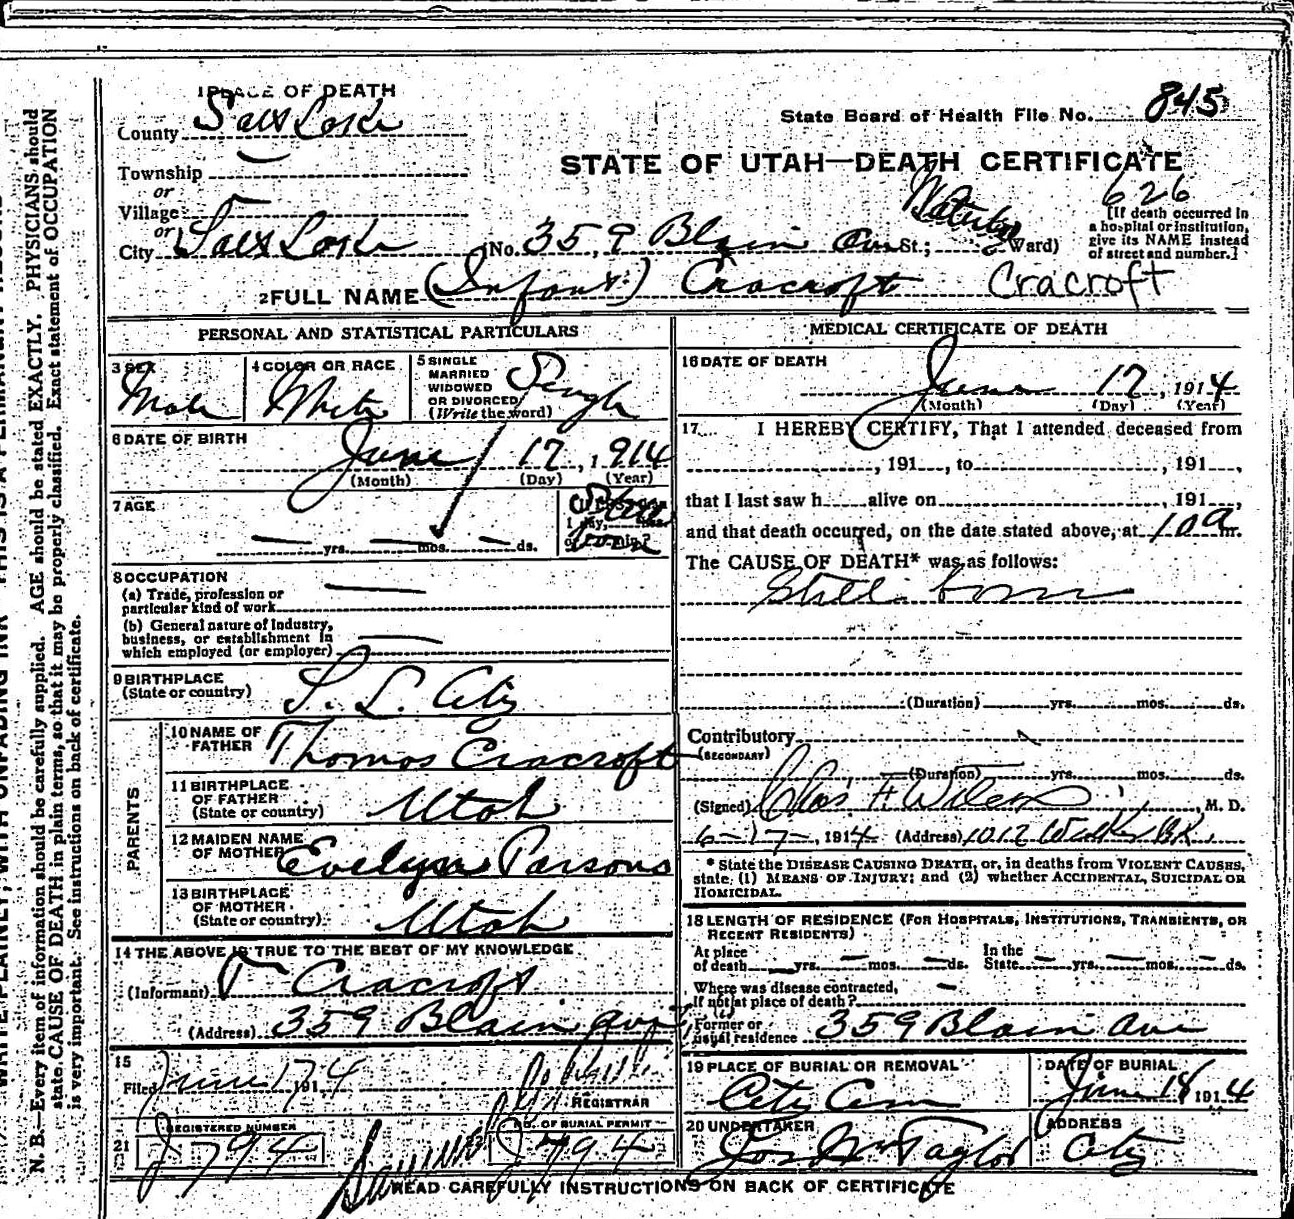 1 PLACE OF DEATH
County Salt Lake
State Board of Health File No. 845
STATE OF UTAH—DEATH CERTIFICATE
Township
or
Village
or
City Salt Lake (No. 359 Blain Ave St.; Ward)
626
[If death occurred in
a hospital or institution,
give its NAME instead
of street and number.]
2 FULL NAME (Infant) Cracroft Cracroft
PERSONAL AND STATISTICAL PARTICULARS
3 SEX
Male
4 COLOR OR RACE
White
5 SINGLE
MARRIED
WIDOWED
OR DIVORCED
(Write the word)
Single
6 DATE OF BIRTH
June 17, 1914
(Month) (Day) (Year)
7 AGE
yrs. mos. ds.
8 OCCUPATION
(a) Trade, profession or
particular kind of work
(b) General nature of industry,
business, or establishment in
which employed (or employer)
9 BIRTHPLACE
(State or country)
S. L. City
PARENTS
10 NAME OF
FATHER
Thomas Cracroft
11 BIRTHPLACE
OF FATHER
(State or country)
Utah
12 MAIDEN NAME
OF MOTHER
Evelyn Parsons
13 BIRTHPLACE
OF MOTHER
(State or country)
Utah
14 THE ABOVE IS TRUE TO THE BEST OF MY KNOWLEDGE
(Informant) T Cracroft
(Address) 359 Blain Ave
15
Filed June 17 1914
REGISTRAR
21
REGISTERED NUMBER
J794
NO. OF BURIAL PERMIT
J794
MEDICAL CERTIFICATE OF DEATH
16 DATE OF DEATH
June 17, 1914
(Month) (Day) (Year)
17 I HEREBY CERTIFY, That I attended deceased from
, 191 , to , 191 ,
that I last saw h alive on , 191 ,
and that death occurred, on the date stated above, at 10 a m.
The CAUSE OF DEATH* was as follows:
Still born
(Duration) yrs. mos. ds.
Contributory
(SECONDARY)
(Duration) yrs. mos. ds.
(Signed) Chas F Wilcox, M. D.
6-17-, 1914 (Address) 1012 Walker Bk.
* State the DISEASE CAUSING DEATH, or, in deaths from VIOLENT CAUSES,
state, (1) MEANS OF INJURY; and (2) whether ACCIDENTAL, SUICIDAL OR
HOMICIDAL.
18 LENGTH OF RESIDENCE (FOR HOSPITALS, INSTITUTIONS, TRANSIENTS, OR
RECENT RESIDENTS)
At place
of death yrs. mos. ds.
In the
State yrs. mos. ds.
Where was disease contracted,
if not at place of death?
Former or
usual residence 359 Blain Ave
19 PLACE OF BURIAL OR REMOVAL
City Cem
DATE OF BURIAL
June 18 1914
20 UNDERTAKER
Jos Wm Taylor
ADDRESS
City
READ CAREFULLY INSTRUCTIONS ON BACK OF CERTIFICATE
N. B.—Every item of information should be carefully supplied. AGE should be stated EXACTLY. PHYSICIANS should
state CAUSE OF DEATH in plain terms, so that it may be properly classified. Exact statement of OCCUPATION
is very important. See instructions on back of certificate.